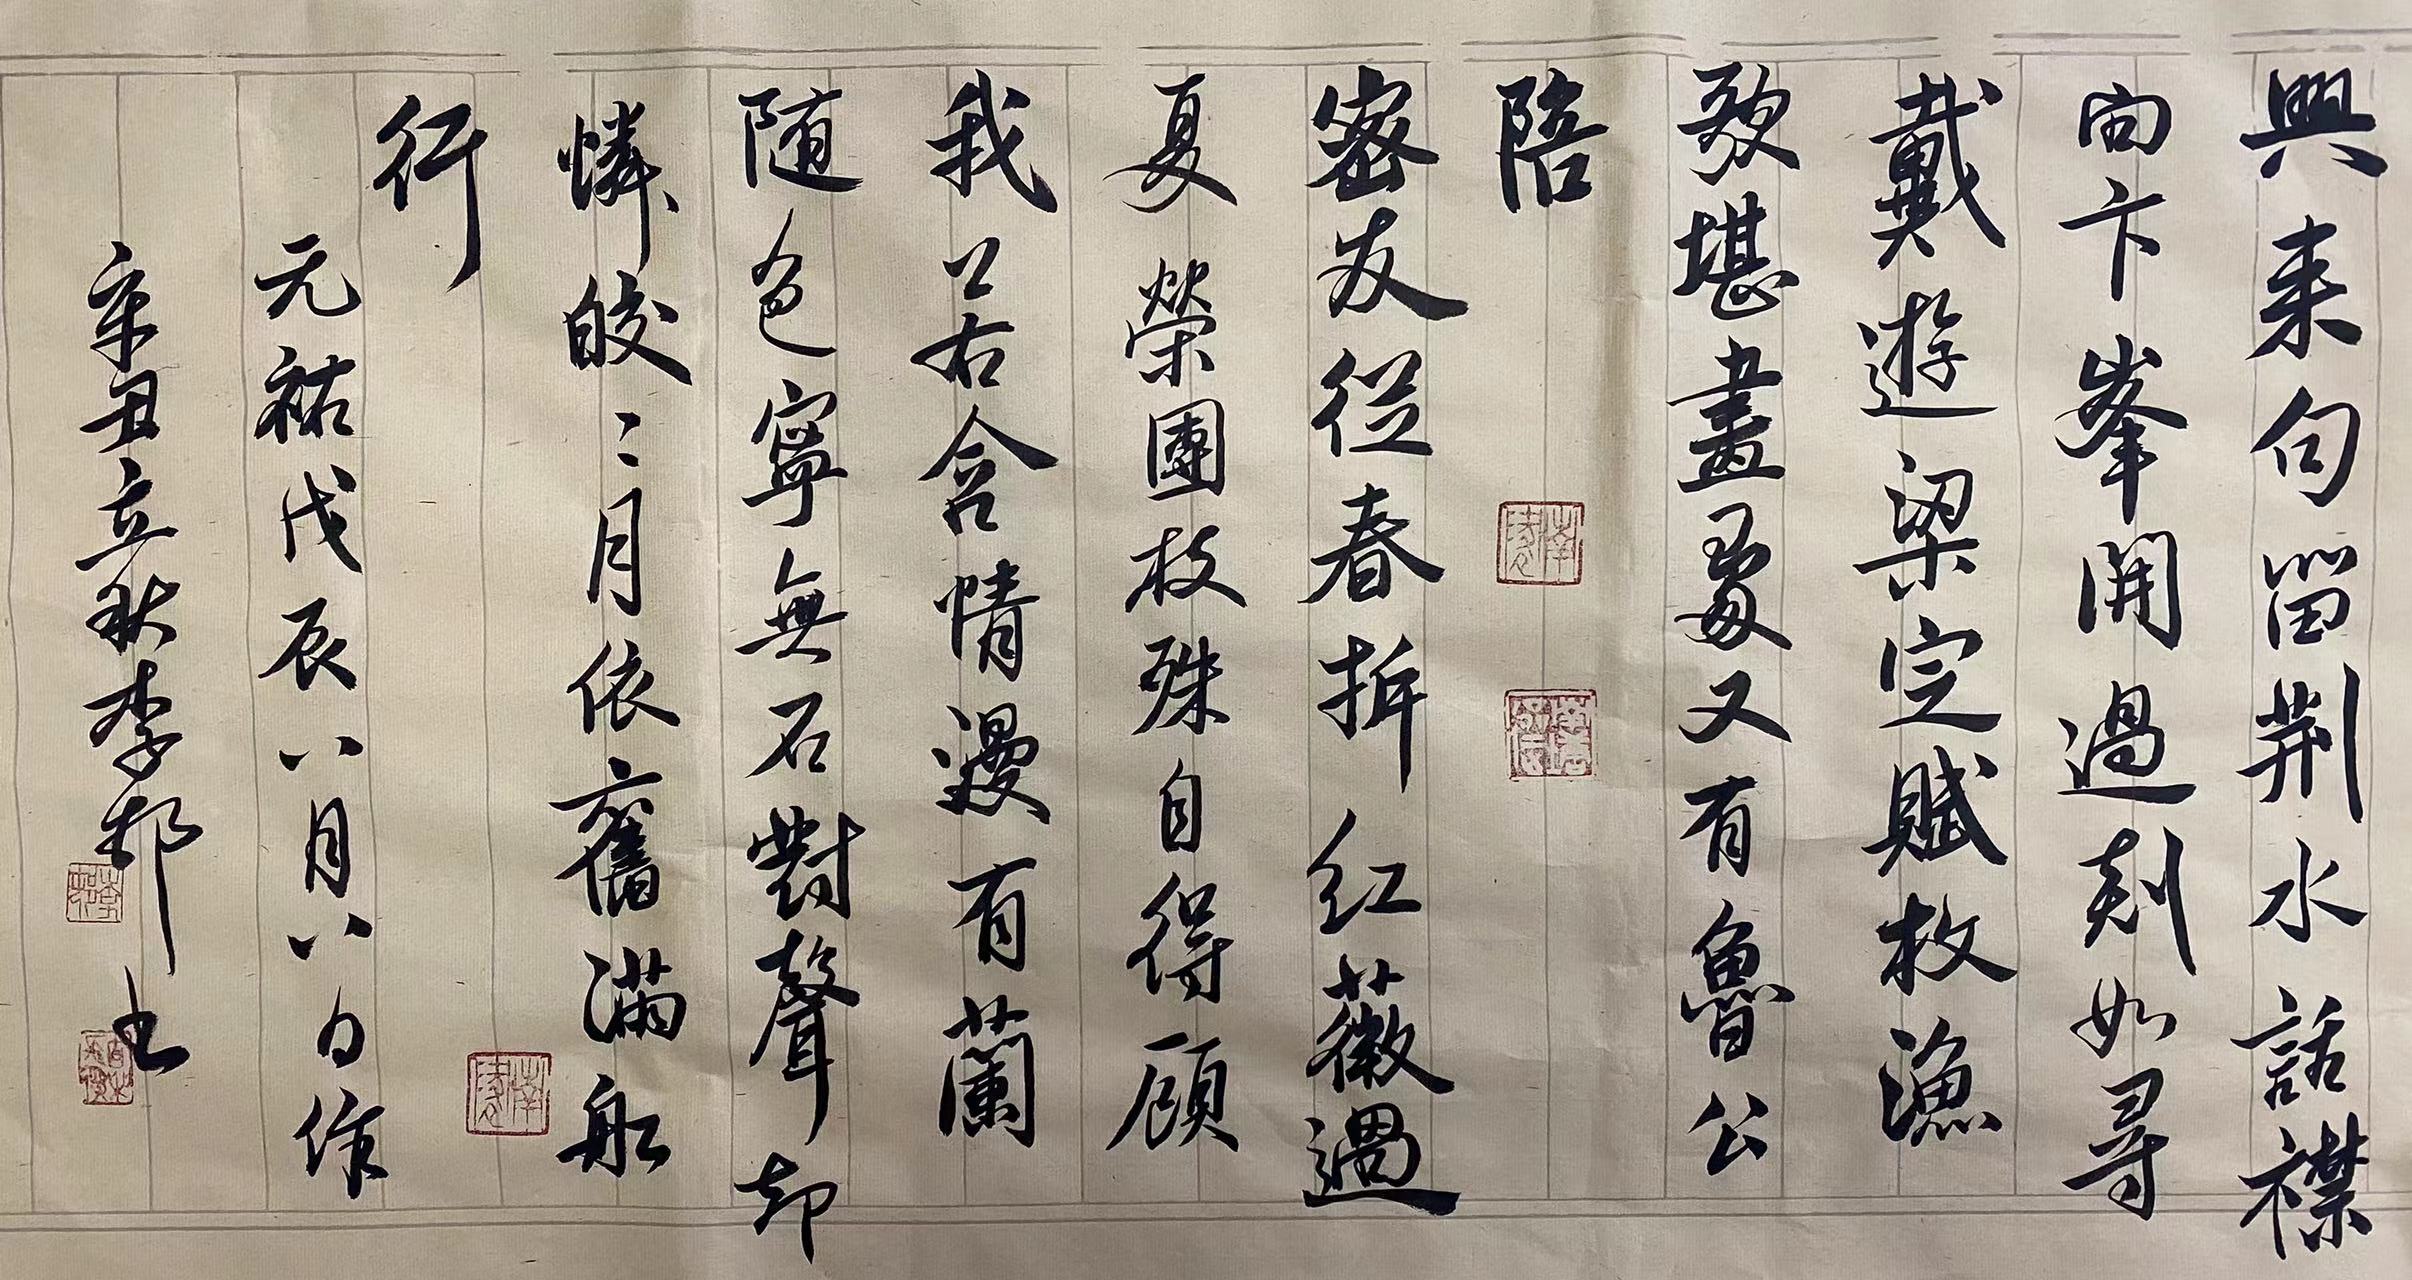 興来句留荆水話襟
向卞峯開過剡如尋
戴遊梁定賦枚漁
歌堪畫處又有魯公
陪
密友從春拆紅薇過
夏榮團枝殊自得顧
我若含情漫有蘭
随色寧無石對聲却
憐皎〻月依舊滿船
行
元祐戊辰八月八日作
辛丑立秋李书